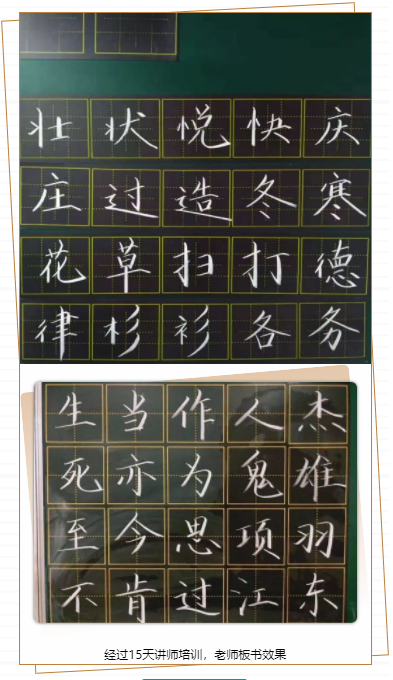 壮状悦快庆
庄过造冬寒
花草扫打德
律杉衫各务
生当作人杰
死亦为鬼雄
至今思项羽
不肯过江东
经过15天讲师培训，老师板书效果